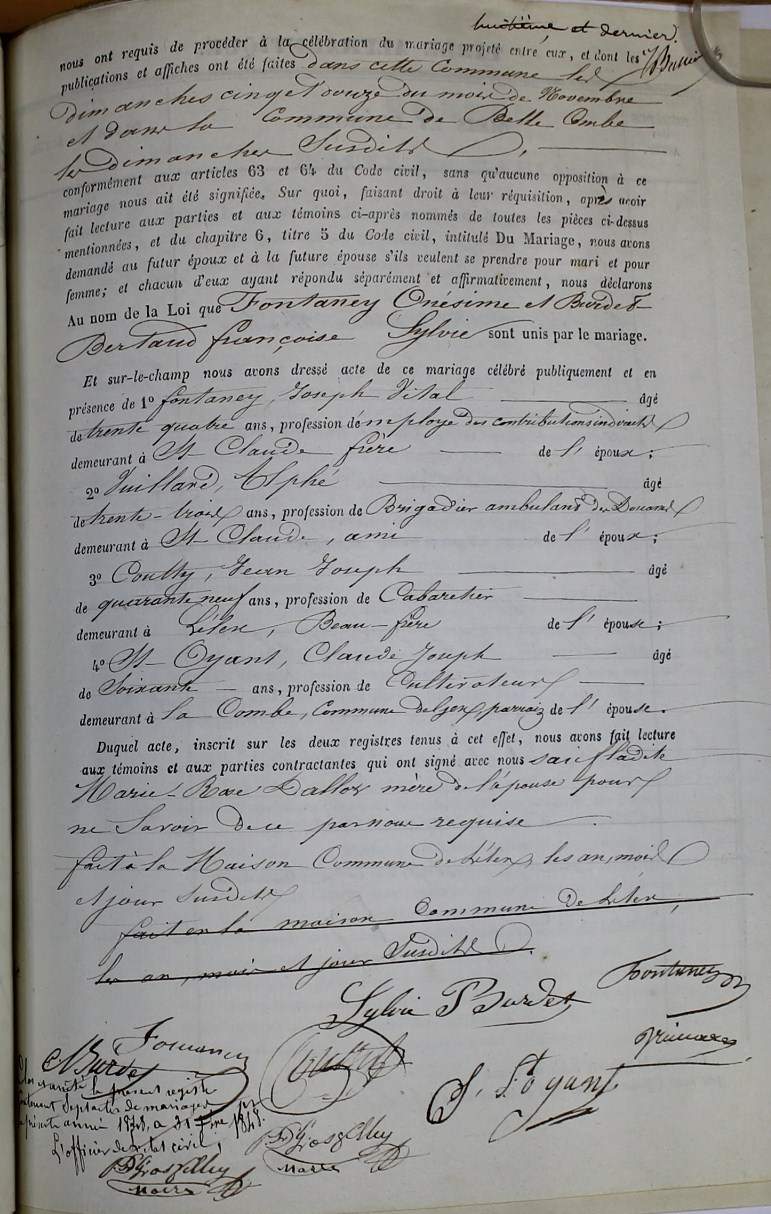 huitième et dernier.
nous ont requis de procéder à la célébration du mariage projeté entre eux, et dont les
publications et affiches ont été faites dans cette Commune les
dimanches cinq et douze du mois de Novembre
et dans la Commune de Belle Combe
les dimanches Susdits
conformément aux articles 63 et 64 du Code civil, sans qu'aucune opposition à ce
mariage nous ait été signifiée. Sur quoi, faisant droit à leur réquisition, après avoir
fait lecture aux parties et aux témoins ci-après nommés de toutes les pièces ci-dessus
mentionnées, et du chapitre 6, titre 5 du Code civil, intitulé Du Mariage, nous avons
demandé au futur époux et à la future épouse s'ils veulent se prendre pour mari et pour
femme; et chacun d'eux ayant répondu séparément et affirmativement, nous déclarons
Au nom de la Loi que Fontaney Onésime et Burdet-
Bertaud françoise Sylvie sont unis par le mariage.
Et sur-le-champ nous avons dressé acte de ce mariage célébré publiquement et en
présence de 1º fontaney, Joseph Vital âgé
de trente quatre ans, profession d'employé des contributions indirectes
demeurant à St Claude frère de l' époux;
2º Vuillard, Alphé âgé
de trente-trois ans, profession de Brigadier ambulant des Douanes
demeurant à St Claude, ami de l' époux;
3º Coutty, Jean Joseph âgé
de quarante neuf ans, profession de Cabaretier
demeurant à Lélex, Beau-frère de l' épouse;
4º St-Oyant, Claude Joseph âgé
de Soixante ans, profession de Cultivateur
demeurant à la Combe, Commune de Gex, parrain de l' épouse.
Duquel acte, inscrit sur les deux registres tenus à cet effet, nous avons fait lecture
aux témoins et aux parties contractantes qui ont signé avec nous sauf ladite
Marie-Rose Dalloz mère de l'épouse pour
ne Savoir de ce par nous requise
fait à la Maison Commune de Lélex, les an, mois
et jour susdits
fait en la maison Commune de Lélex,
les an, mois et jour Susdits.
Sylvie Burdet Fontaney
Burdet Fontaney Coutty
S. St Oyant
Clos et arrêté le présent registre
contenant Sept actes de mariages pr
la présente année 1848, a 31 Xbre 1848.
L'officier de l'état civil,
Grosfilley
Maire
Grosfilley
Maire